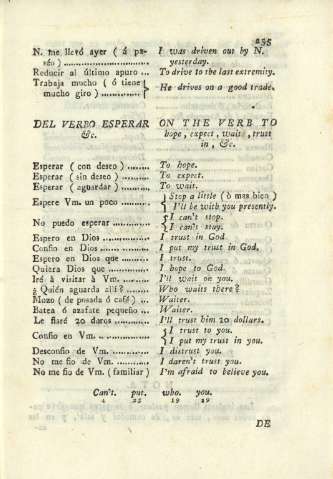 235
N. me llevó ayer ( á pa- I was driven out by N.
séo ) ................ yesterday.
Reducir al último apuro ... To drive to the last extremity.
Trabaja mucho ( ó tiene } He drives on a good trade.
mucho giro ) ..............
DEL VERBO ESPERAR ON THE VERB TO
&c. hope, expect, wait, trust
in, &c.
Esperar ( con deseo ) ........ To hope.
Esperar ( sin deseo ) ........ To expect.
Esperar ( aguardar ) ........ To wait.
Espere Vm. un poco ......... { Stop a little ( ò mas bien )
I'll be with you presently.
No puedo esperar ........... { I can't stop.
I can't stay.
Espero en Dios .............. I trust in God.
Confio en Dios .............. I put my trust in God.
Espero en Dios que ......... I trust.
Quiera Dios que ............ I hope to God.
Iré á visitar à Vm. ......... I'll wait on you.
¿ Quién aguarda allí? ....... Who waits there?
Mozo ( de posada ó café ) ... Waiter.
Batea ó azafate pequeño ... Waiter.
Le fiaré 20 duros ............ I'll trust him 20 dollars.
Confio en Vm. .............. { I trust to you.
I put my trust in you.
Desconfio de Vm. ........... I distrust you.
No me fio de Vm. .......... I daren't trust you.
No me fio de Vm. ( familiar ) I'm afraid to believe you.
Can't. put. who. you.
4 25 19 29
DE